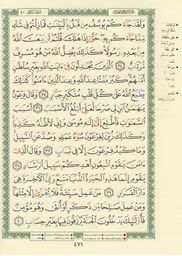 وَلَقَدْ جَاءَكُمْ يُوسُفُ مِن قَبْلُ بِالْبَيِّنَاتِ فَمَا زِلْتُمْ فِي شَكٍّ
مِّمَّا جَاءَكُم بِهِ حَتَّى إِذَا هَلَكَ قُلْتُمْ لَن يَبْعَثَ اللَّهُ
مِن بَعْدِهِ رَسُولًا كَذَلِكَ يُضِلُّ اللَّهُ مَنْ هُوَ مُسْرِفٌ
مُّرْتَابٌ ٣٤ الَّذِينَ يُجَادِلُونَ فِي آيَاتِ اللَّهِ بِغَيْرِ سُلْطَانٍ
أَتَاهُمْ كَبُرَ مَقْتًا عِندَ اللَّهِ وَعِندَ الَّذِينَ آمَنُوا كَذَلِكَ
يَطْبَعُ اللَّهُ عَلَى كُلِّ قَلْبِ مُتَكَبِّرٍ جَبَّارٍ ٣٥ وَقَالَ فِرْعَوْنُ
يَا هَامَانُ ابْنِ لِي صَرْحًا لَّعَلِّي أَبْلُغُ الْأَسْبَابَ ٣٦ أَسْبَابَ
السَّمَاوَاتِ فَأَطَّلِعَ إِلَى إِلَهِ مُوسَى وَإِنِّي لَأَظُنُّهُ كَاذِبًا
وَكَذَلِكَ زُيِّنَ لِفِرْعَوْنَ سُوءُ عَمَلِهِ وَصُدَّ عَنِ السَّبِيلِ
وَمَا كَيْدُ فِرْعَوْنَ إِلَّا فِي تَبَابٍ ٣٧ وَقَالَ الَّذِي
آمَنَ يَا قَوْمِ اتَّبِعُونِ أَهْدِكُمْ سَبِيلَ الرَّشَادِ ٣٨
يَا قَوْمِ إِنَّمَا هَذِهِ الْحَيَاةُ الدُّنْيَا مَتَاعٌ وَإِنَّ الْآخِرَةَ هِيَ دَارُ
الْقَرَارِ ٣٩ مَنْ عَمِلَ سَيِّئَةً فَلَا يُجْزَى إِلَّا مِثْلَهَا
وَمَنْ عَمِلَ صَالِحًا مِّن ذَكَرٍ أَوْ أُنثَى وَهُوَ مُؤْمِنٌ
فَأُولَئِكَ يَدْخُلُونَ الْجَنَّةَ يُرْزَقُونَ فِيهَا بِغَيْرِ حِسَابٍ ٤٠
٤٧١